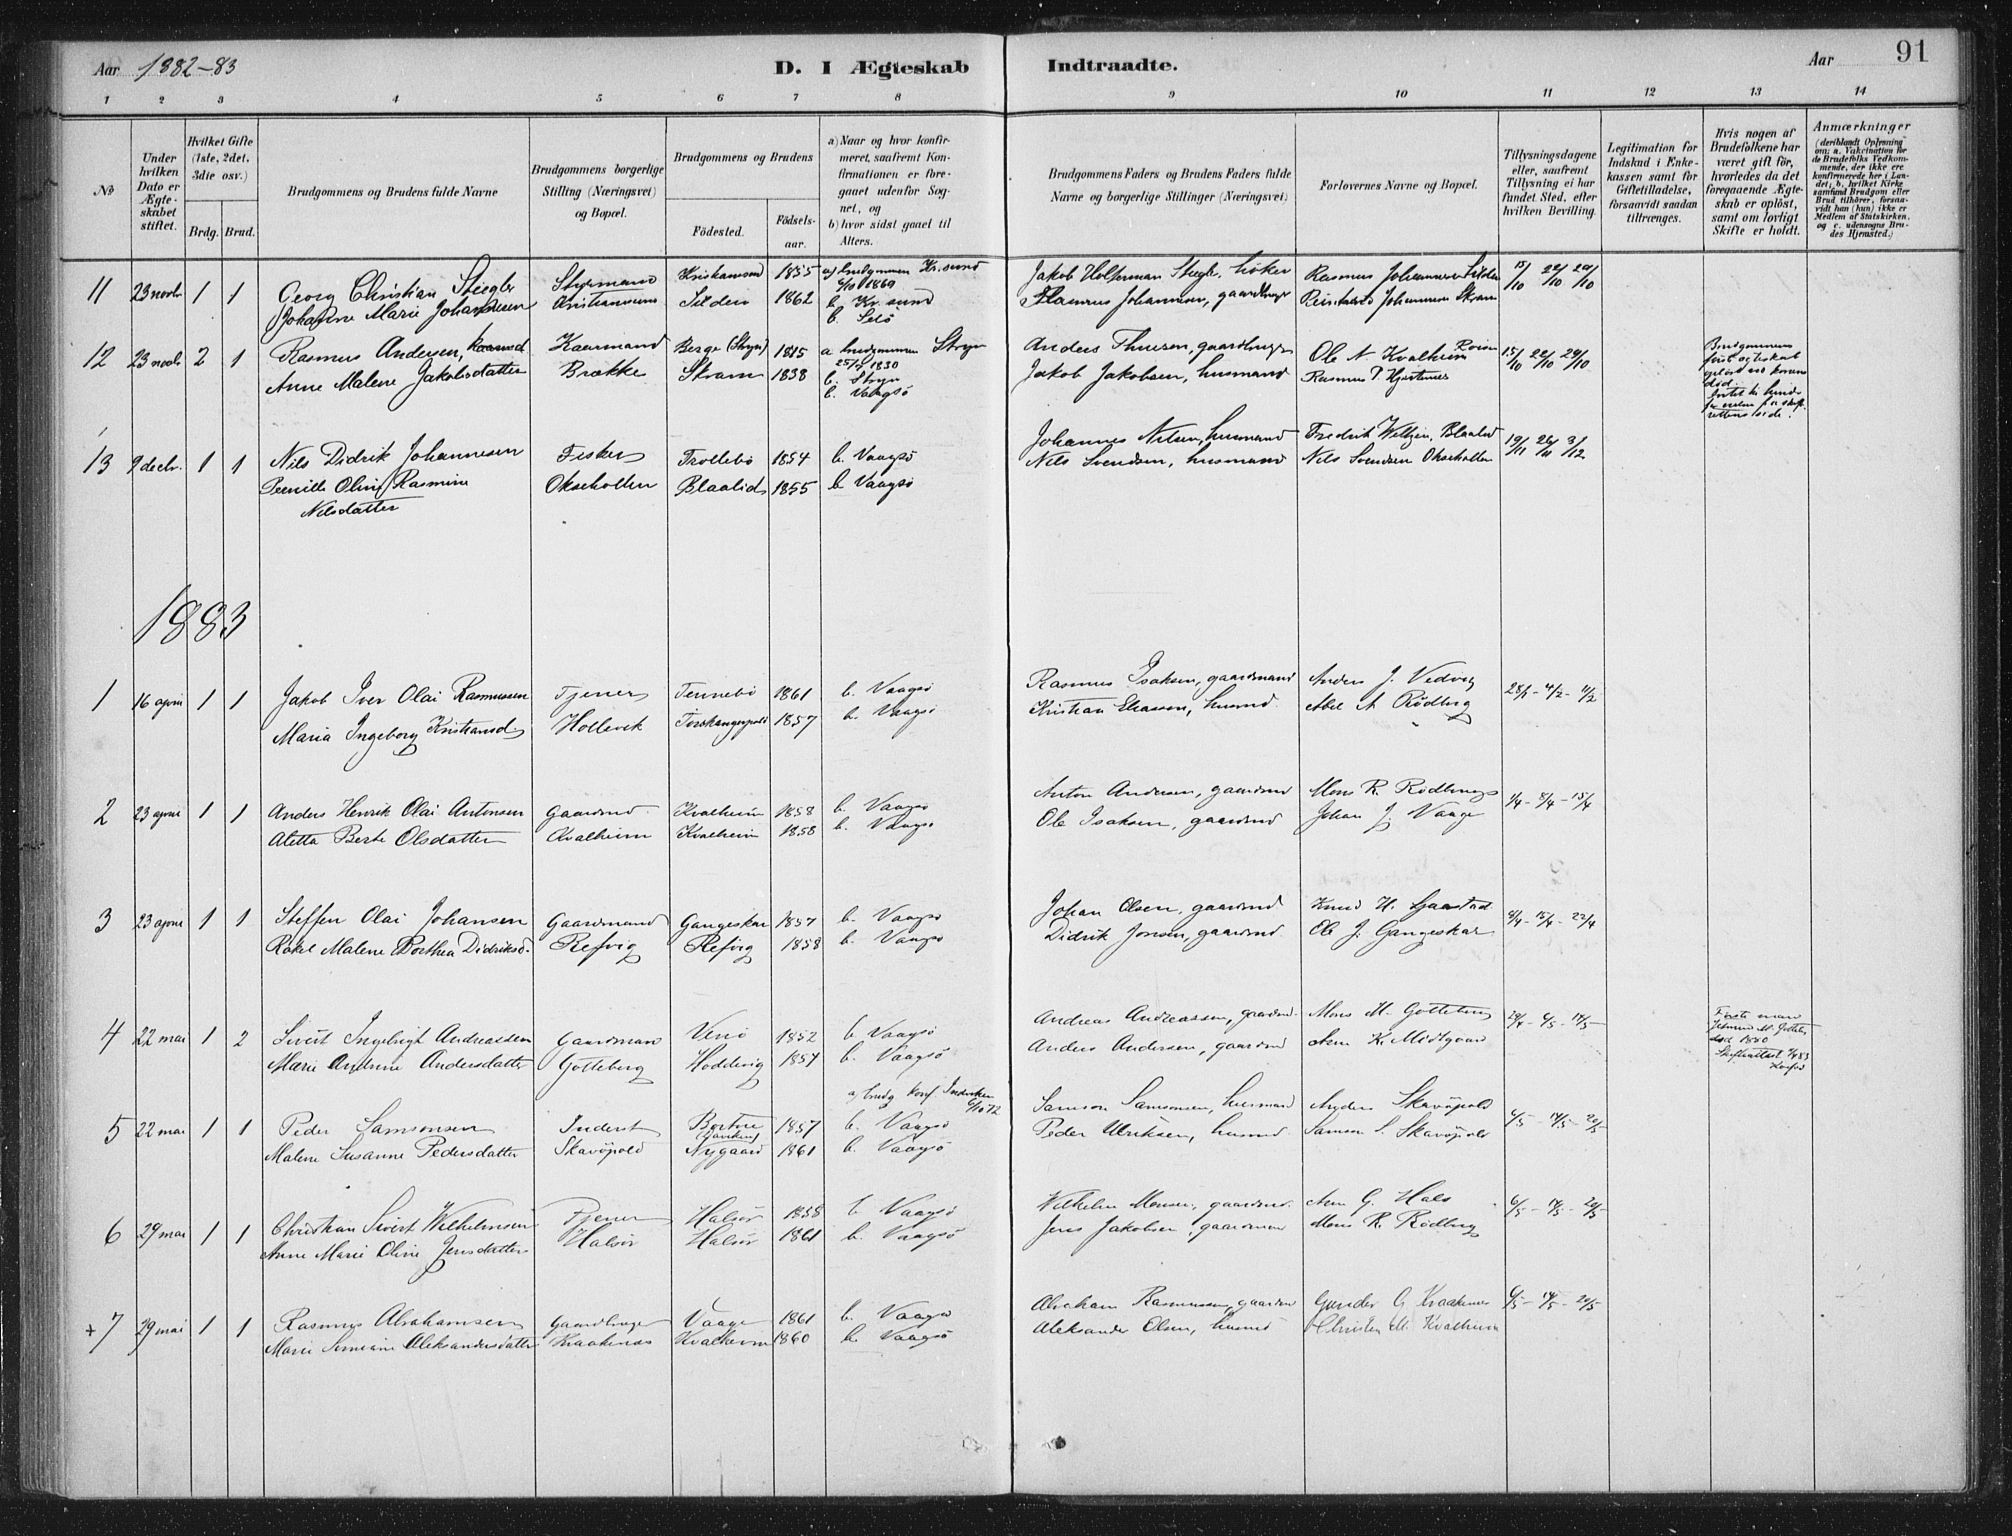 Aar 1882-83
D. I Ægteskab Indtraadte.
Aar
91
1 2 3 4 5 6 7 8 9 10 11 12 13 14
No
Under hvilken Dato er Ægteskabet stiftet.
Hvilket Gifte (1ste, 2det, 3die osv.)
Brdg. Brud.
Brudgommens og Brudens fulde Navne
Brudgommens borgerlige Stilling (Næringsvei) og Bopæl.
Brudgommens og Brudens
Födested.
Födsels-aar.
a) Naar og hvor konfirmeret, saafremt Konfirmationen er foregaaet udenfor Sognet, og
b) hvor sidst gaaet til Alters.
Brudgommens Faders og Brudens Faders fulde Navne og borgerlige Stillinger (Næringsvei)
Forlovernes Navne og Bopæl.
Tillysningsdagene eller, saafremt Tillysning ei har fundet Sted, efter hvilken Bevilling.
Legitimation for Indskud i Enkekassen samt for Giftetilladelse, forsaavidt saadan tiltrænges.
Hvis nogen af Brudefolkene har været gift för, hvorledes da det foregaaende Ægteskab er oplöst, samt om lovligt Skifte er holdt.
Anmærkninger (deriblandt Oplysning om: a. Vakcination for de Brudefolks Vedkommende, der ikke ere konfirmerede her i Landet; b. hvilket Kirkesamfund Brudgom eller Brud tilhörer, forsaavidt han (hun) ikke er Medlem af Statskirken, og c. udensogns Brudes Hjemsted.)
11 23 novbr 1 1 Georg Christian Stegler Styrmand Kristiansund 1855 a) brudgommen Kr.sund 6/10 1869 Jakob Stegler, höker Rasmus Johannesen Silden 15/10 22/10 29/10
Johanne Marie Johannesen Kristiansund Silden 1862 b. Kr.sund b. Selö Johannesen, gaardbruger Johannesen Skram
12 23 novbr 2 1 Rasmus Andersen, Kaarmand Berge (Stryn) 1815 a brudgommen Stryn 1830 Anders gaardbruger Ole N. Kvalheim 15/10 22/10 29/10 Brudgommens förste ægteskab oplöst ved konens död.
Anne Malene Jakobsdatter Brække Skram 1838 b. Stryn b. Vaagsö Jakob Jakobsen, husmand Rasmus P. Hjertenes
13 9 decbr. 1 1 Nils Didrik Johannesen Fisker Trollebö 1854 b. Vaagsö Johannes Nilsen, husmand Fredrik Blaalid 19/11 26/11 3/12
Pernille Oline Rasmine Okseholten Blaalid 1855 b. Vaagsö Nils Svendsen, husmand Nils Svendsen Okseholten
Nilsdatter
1883
1 16 april 1 1 Jakob Iver Olai Rasmussen Tjener Tennebö 1861 b. Vaagsö Rasmus Isaksen, gaardmand Anders J. Vedvig 28/1 - 4/2 - 11/2
Maria Ingeborg Kristiansd. Hollevik Torskangerpold 1857 b. Vaagsö Kristian Eliassen, husmd. Abel A. Rödberg
2 23 april 1 1 Anders Henrik Olai Antonsen Gaardmd. Kvalheim 1858 b. Vaagsö Anton Andersen, gaardmd Mons R. Rödberg 1/4 - 8/4 - 15/4
Aletta Berte Olsdatter Kvalheim Kvalheim 1858 b. Vaagsö Ole Isaksen, gaardmd Johan J. Vaage
3 23 april 1 1 Steffen Olai Johansen Gaardmand Gangeskar 1857 b. Vaagsö Johan Olsen, gaardmd Knud H. 8/4 - 15/4 - 22/4
Rakel Malene Dorthea Didriksd. Refvig Refvig 1858 b. Vaagsö Didrik Jonsen, gaardmd Ole J. Gangeskar
4 22 mai 1 2 Sivert Ingebrigt Andreassen Gaardmand 1852 b. Vaagsö Andreas Andreassen, gaardmd. Mons M. Gotteberg 29/4 - 6/5 - 14/5 Förste man
Marie Andrine Andersdatter Gotteberg Hoddevig 1857 b. Vaagsö Anders Andersen, gaardmd K. Midtgaard död 1880
5 22 mai 1 1 Peder Samsonsen Inderst 1857 a) brudg. konf. 6/10 72 b. Vaagsö Samson Samsonsen, husmand Anders Skavöpold 6/5 - 14/5 - 20/5
Malene Susanne Pedersdatter Skavöpold Nygaard 1861 b. Vaagsö Peder Ulriksen, husmd Samson S. Skavöpold
6 29 mai 1 1 Christian Sivert Wilhelmsen Tjener Halsör 1858 b. Vaagsö Wilhelm Monsen, gaardmd. G. Hals 6/5 - 14/5 - 20/5
Anne Marie Oline Jensdatter Halsör Halsör 1861 b. Vaagsö Jens Jakobsen, gaardman Mons R. Rödberg
+ 7 29 mai 1 1 Rasmus Abrahamsen Gaardbruger Vaage 1861 b. Vaagsö Abraham Rasmussen, gaardmd Gunder G. Kraakenes 6/5 - 14/5 - 20/5
Marie Aleksandersdatter Kraakenes Kvalheim 1860 b. Vaagsö Aleksander Olsen, husmd Christen M. Kvalheim